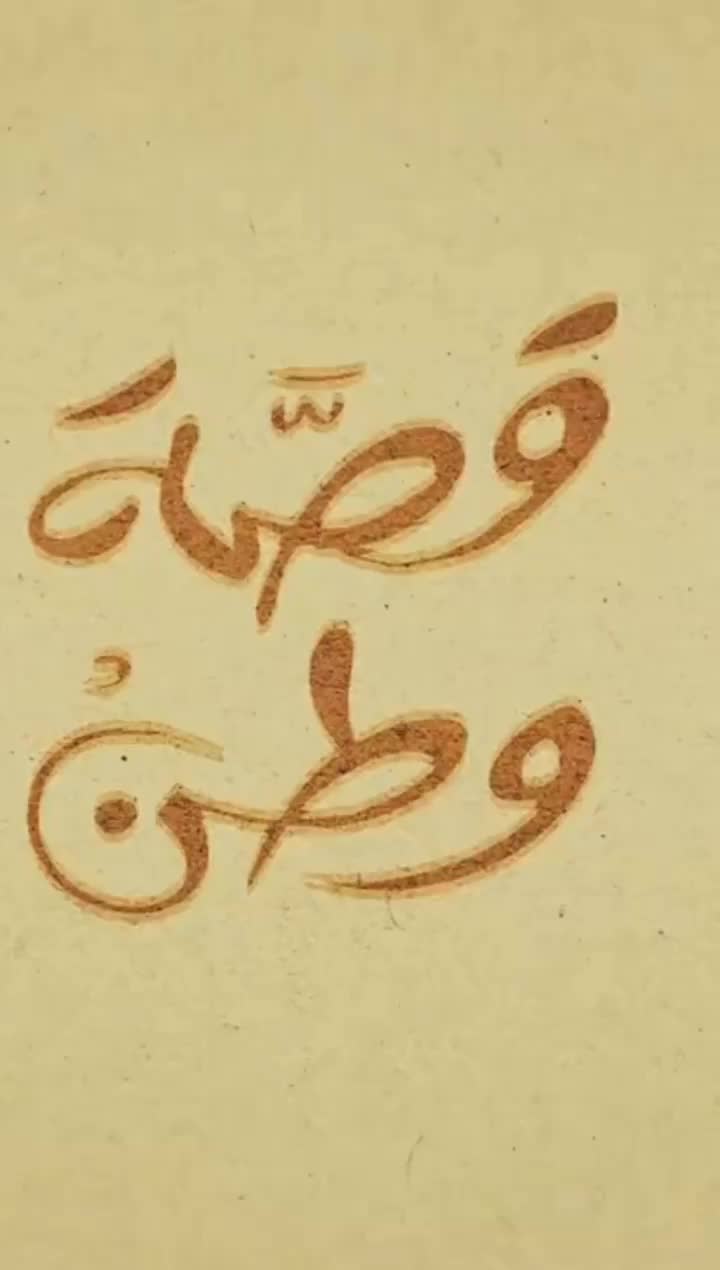 قصّة
وطنْ